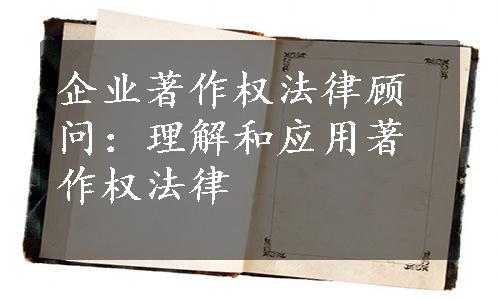 企业著作权法律顾
问：理解和应用著
作权法律